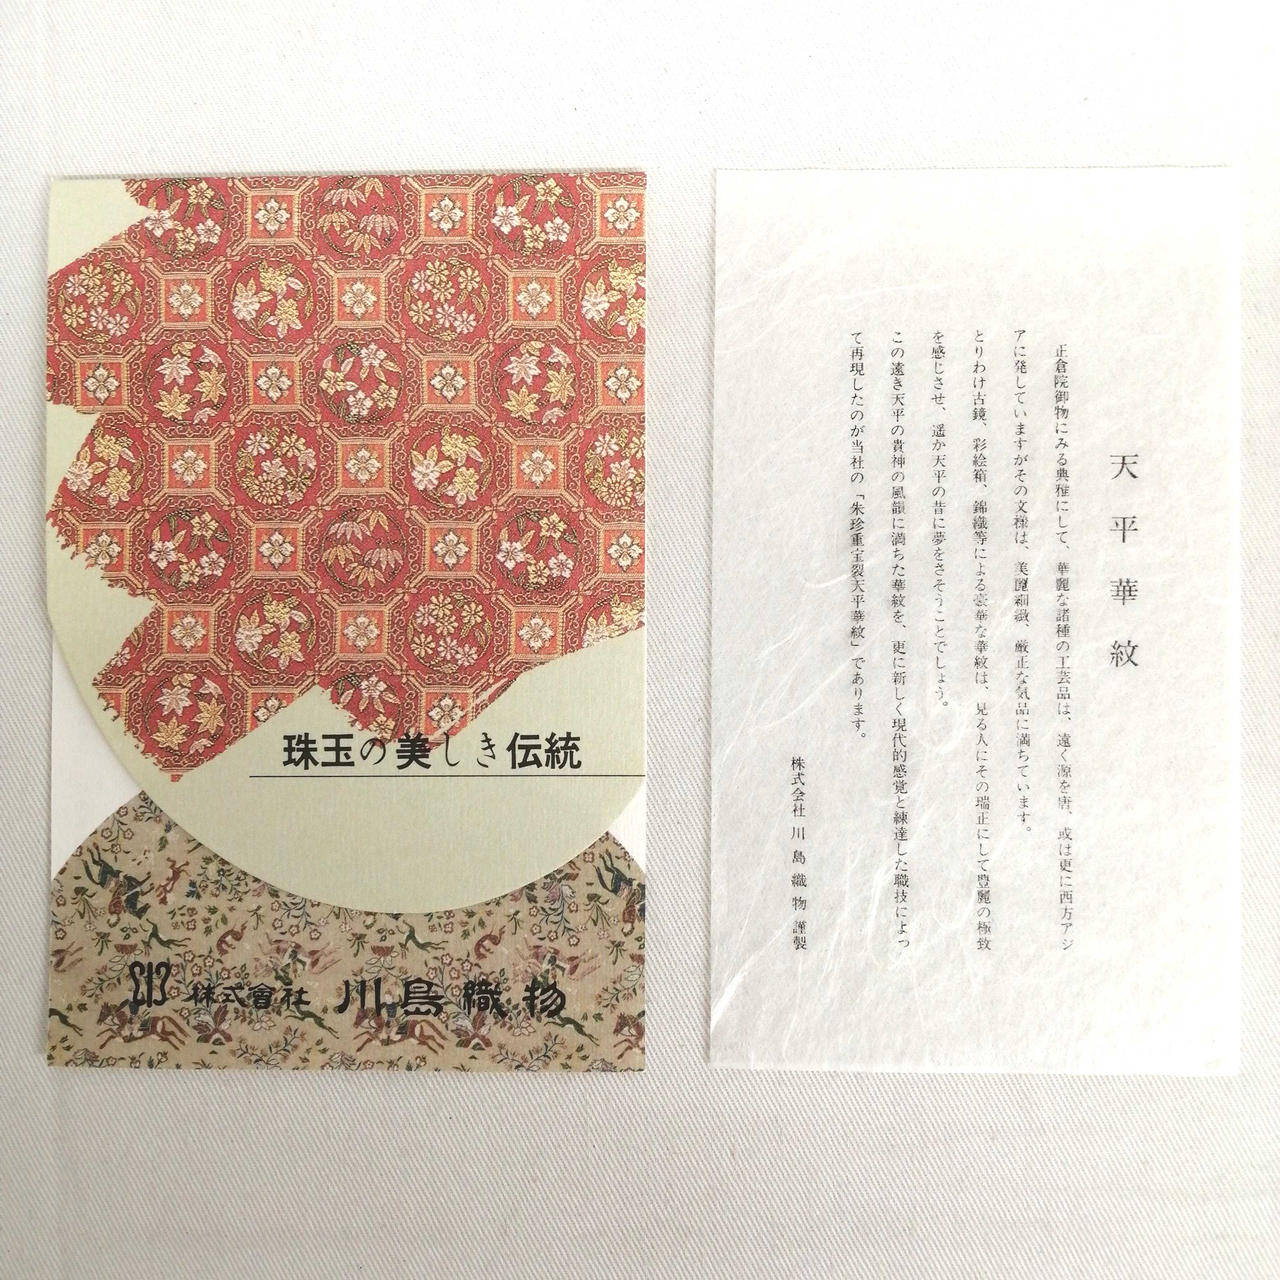 珠玉の美しき伝統
株式會社 川島織物
天平華紋
正倉院御物にみる典雅にして、華麗な諸種の工芸品は、遠く源を唐、或は更に西方アジ
アに発していますがその文様は、美麗細緻、厳正な気品に満ちています。
とりわけ古鏡、彩絵箱、錦織等による豪華な華紋は、見る人にその瑞正にして豊麗の極致
を感じさせ、遥か天平の昔に夢をさそうことでしょう。
この遠き天平の貴神の風韻に満ちた華紋を、更に新しく現代的感覚と練達した職技によっ
て再現したのが当社の「朱珍重宝裂天平華紋」であります。
株式会社 川島織物 謹製